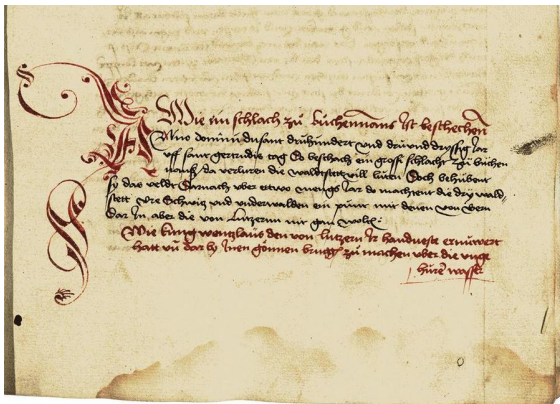 Wie ein schlach zů bůchennans ist beschechen
Anno domini dusant druhundert vnd drü vnd dryssig iar
vff sant gertrudis tag do beschach ein gross schlacht zů büchen
nans da verluren die waldstett vil lüten Doch behůbent
sy das veld Darnach vber etwo menge iar do machtent die dry wald
stett Vre Schwiz vnd vnderwalden ein pünt mit denen von bern
dar In aber die von Lutzernn nit gan wolt
Wie küng wentzlaus den von lutzern Ir handueste ernüwert
hatt vn dar by Inen gönnen brugk zů machen vber die vnge
hüre wasser